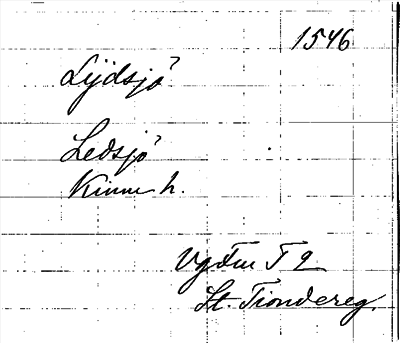 1546
Lydsjö
Ledsjö
Kinne h.
Vg T 2
St. Tiondereg.